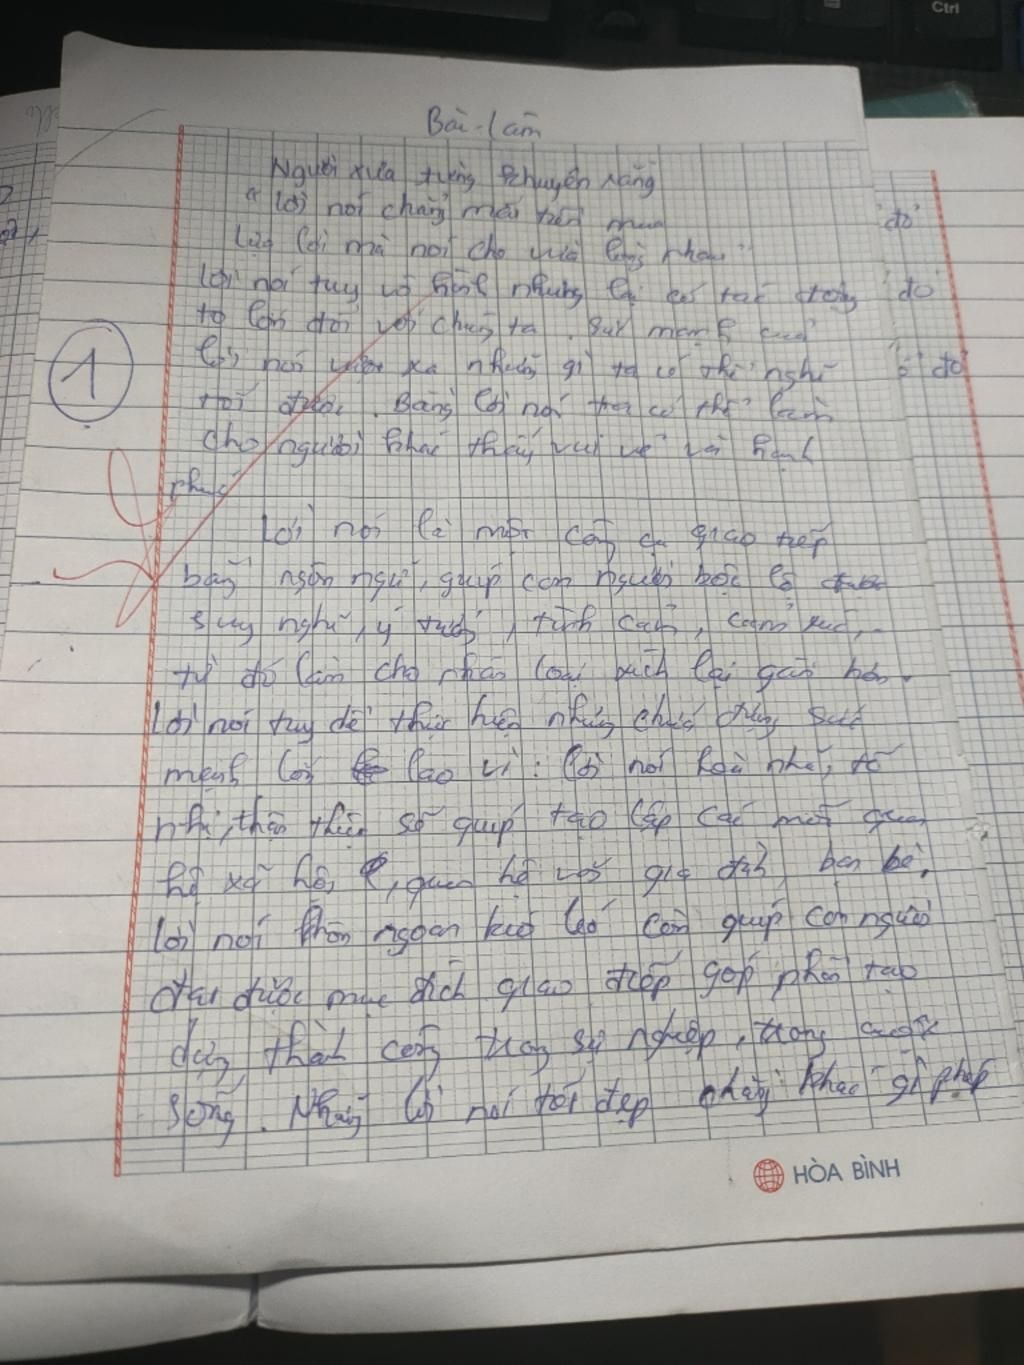 Bài làm
Người xưa từng khuyên rằng
"Lời nói chẳng mất tiền mua
Lựa lời mà nói cho vừa lòng nhau"
Lời nói tuy vô hình nhưng lại có tác động
to lớn đối với chúng ta. Sức mạnh của
lời nói vượt xa những gì ta có thể nghĩ
tới được. Bằng lời nói ta có thể làm
cho người khác thấy vui vẻ và hạnh
phúc
Lời nói là một công cụ giao tiếp
bằng ngôn ngữ, giúp con người bộc lộ được
suy nghĩ, ý tưởng, tình cảm, cảm xúc,
từ đó làm cho nhân loại xích lại gần hơn.
Lời nói tuy dễ thực hiện nhưng chứa đựng sức
mạnh lớn lao vì: lời nói hoà nhã, tế
nhị, thân thiện sẽ giúp tạo lập các mối quan
hệ xã hội, quan hệ với gia đình, bạn bè,
lời nói khôn ngoan khéo léo còn giúp con người
đạt được mục đích giao tiếp góp phần tạo
dựng thành công trong sự nghiệp, trong cuộc
sống. Những lời nói tốt đẹp chẳng khác gì phép
1
đó
đó
đó
HÒA BÌNH